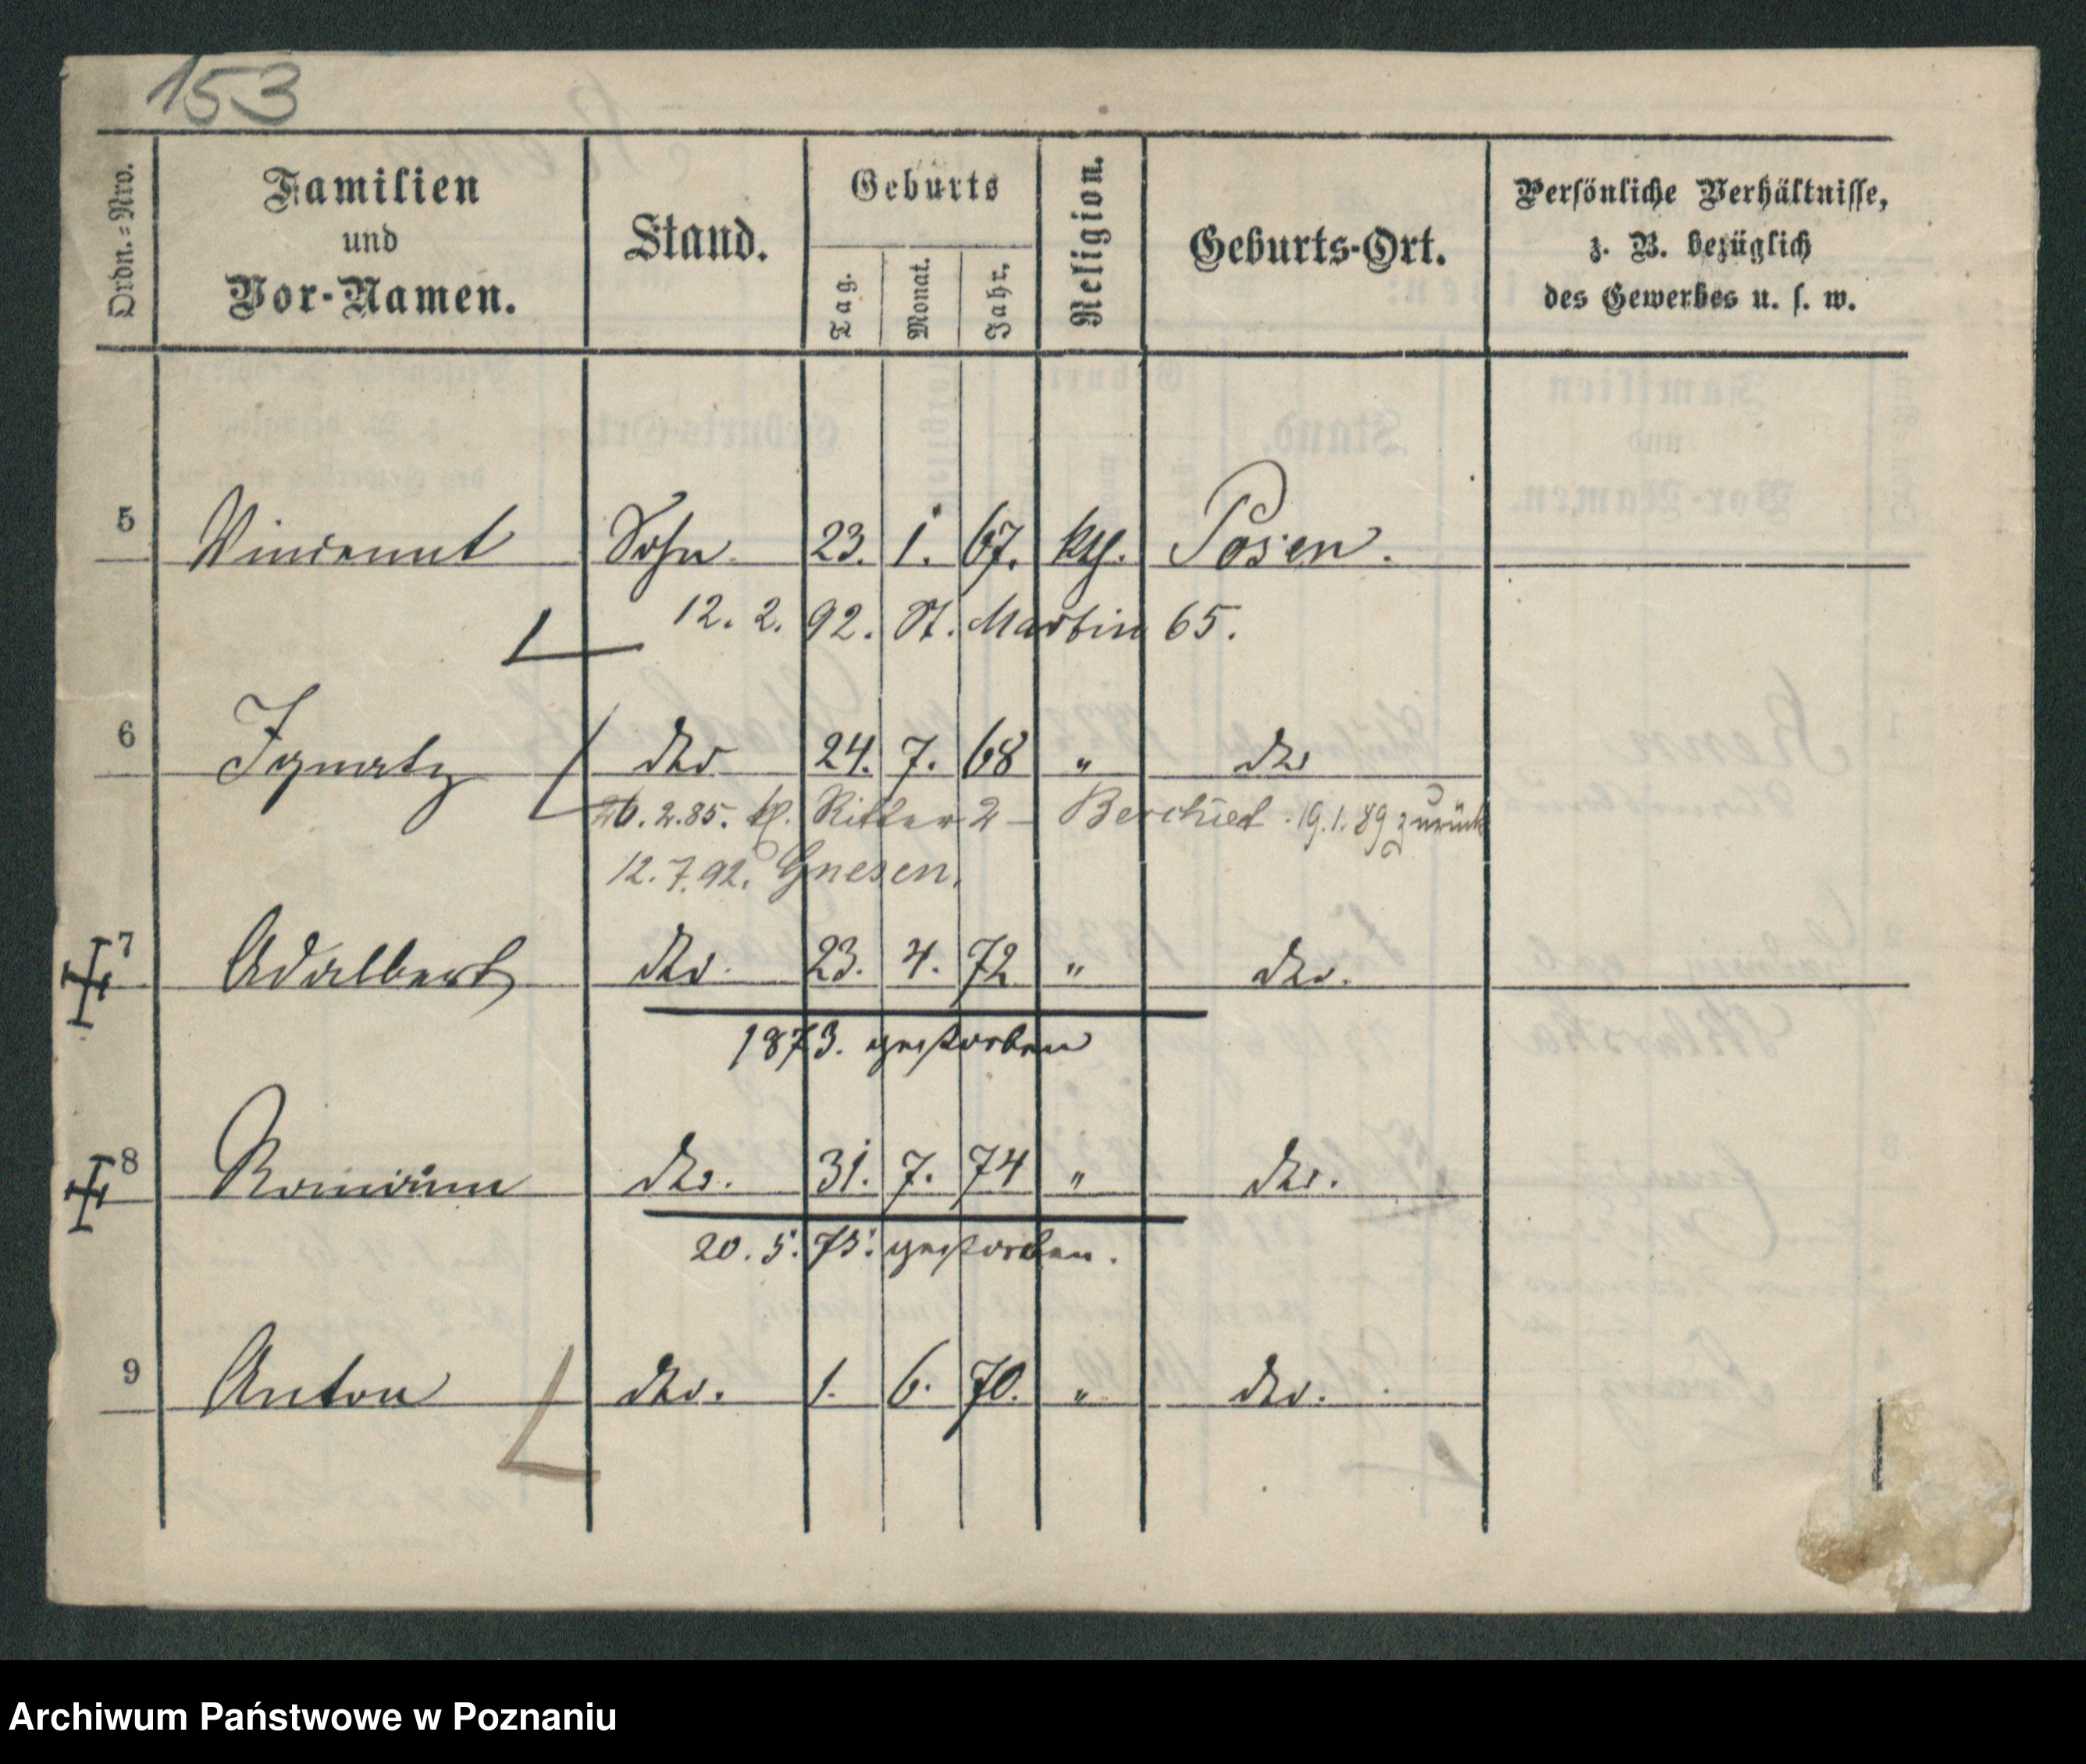 153
Ordn.-Nro.
Familien
und
Vor-Namen.
Stand.
Geburts
Tag.
Monat.
Jahr.
Religion.
Geburts-Ort.
Persönliche Verhältnisse,
z. B. bezüglich
des Gewerbes u. s. w.
5 Vincennt Sohn 23. 1. 67. kth. Posen.
12. 2. 92. St. Martin 65.
6 Ignatz dto 24. 7. 68 " dto
26. 2. 85. kl. Ritter 2 – 19. 1. 89 zurück
12. 7. 92. Gnesen.
7 Adalbert dto. 23. 4. 72 " dto.
1873. gestorben
8 Romann dto. 31. 7. 74 " dto.
20. 5. 75. gestorben.
9 Anton dto. 1. 6. 70. " dto.
Archiwum Państwowe w Poznaniu